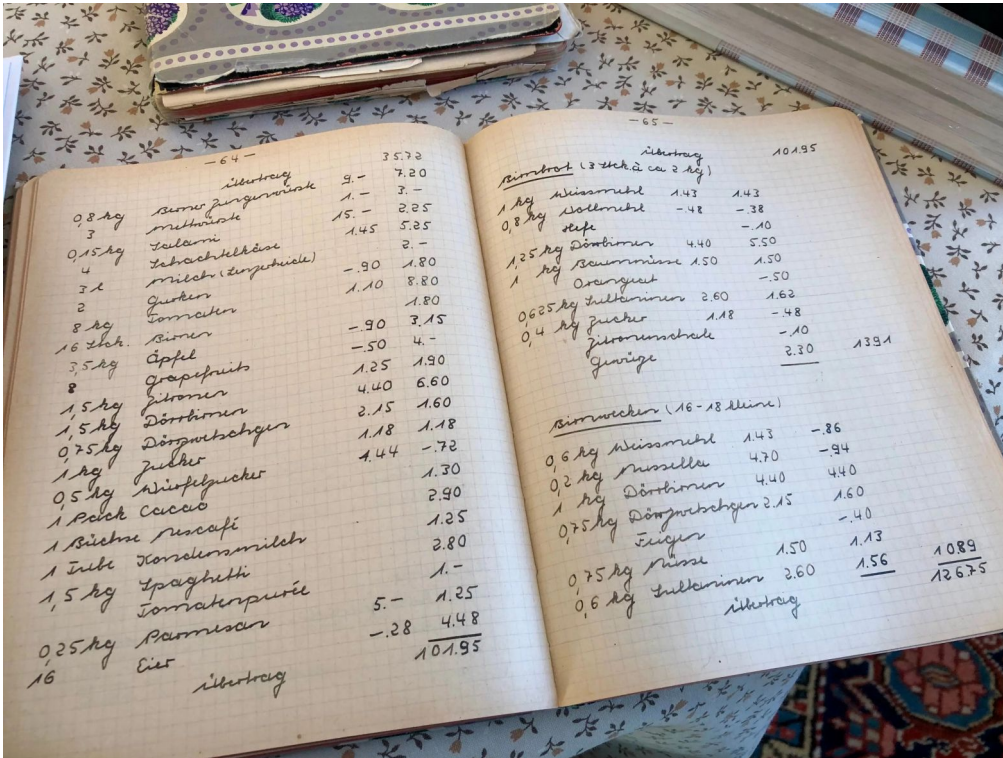 -64-
übertrag 35.72
0,8 kg Berner Zungenwürste 9.- 7.20
3 Mettwürste 1.- 3.-
0,15 kg Salami 15.- 2.25
4 Schachtelkäse 1.45 5.25
3 l Milch (Lenzerheide) 2.-
2 Gurken -.90 1.80
8 kg Tomaten 1.10 8.80
16 Stck. Birnen 1.80
3,5 kg Äpfel -.90 3.15
8 Grapefruits -.50 4.-
1,5 kg Zitronen 1.25 1.90
1,5 kg Dörrbirnen 4.40 6.60
0,75 kg Dörrzwetschgen 2.15 1.60
1 kg Zucker 1.18 1.18
0,5 kg Würfelzucker 1.44 -.72
1 Pack Cacao 1.30
1 Büchse Nescafé 2.90
1 Tube Kondensmilch 1.25
1,5 kg Spaghetti 2.80
Tomatenpurée 1.-
0,25 kg Parmesan 5.- 1.25
16 Eier -.28 4.48
übertrag 101.95
-65-
übertrag 101.95
Birnbrot (3 Stck à ca 2 kg)
1 kg Weissmehl 1.43 1.43
0,8 kg Vollmehl -.48 -.38
Hefe -.10
1,25 kg Dörrbirnen 4.40 5.50
1 kg Baumnüsse 1.50 1.50
Orangeat -.50
0,625 kg Sultaninen 2.60 1.62
0,4 kg Zucker 1.18 -.48
Zitronenschale -.10
Gewürze 2.30 13.91
Birnwecken (16-18 kleine)
0,6 kg Weissmehl 1.43 -.86
0,2 kg Nussella 4.70 -.94
1 kg Dörrbirnen 4.40 4.40
0,75 kg Dörrzwetschgen 2.15 1.60
Feigen -.40
0,75 kg Nüsse 1.50 1.13
0,6 kg Sultaninen 2.60 1.56 10.89
übertrag 126.75